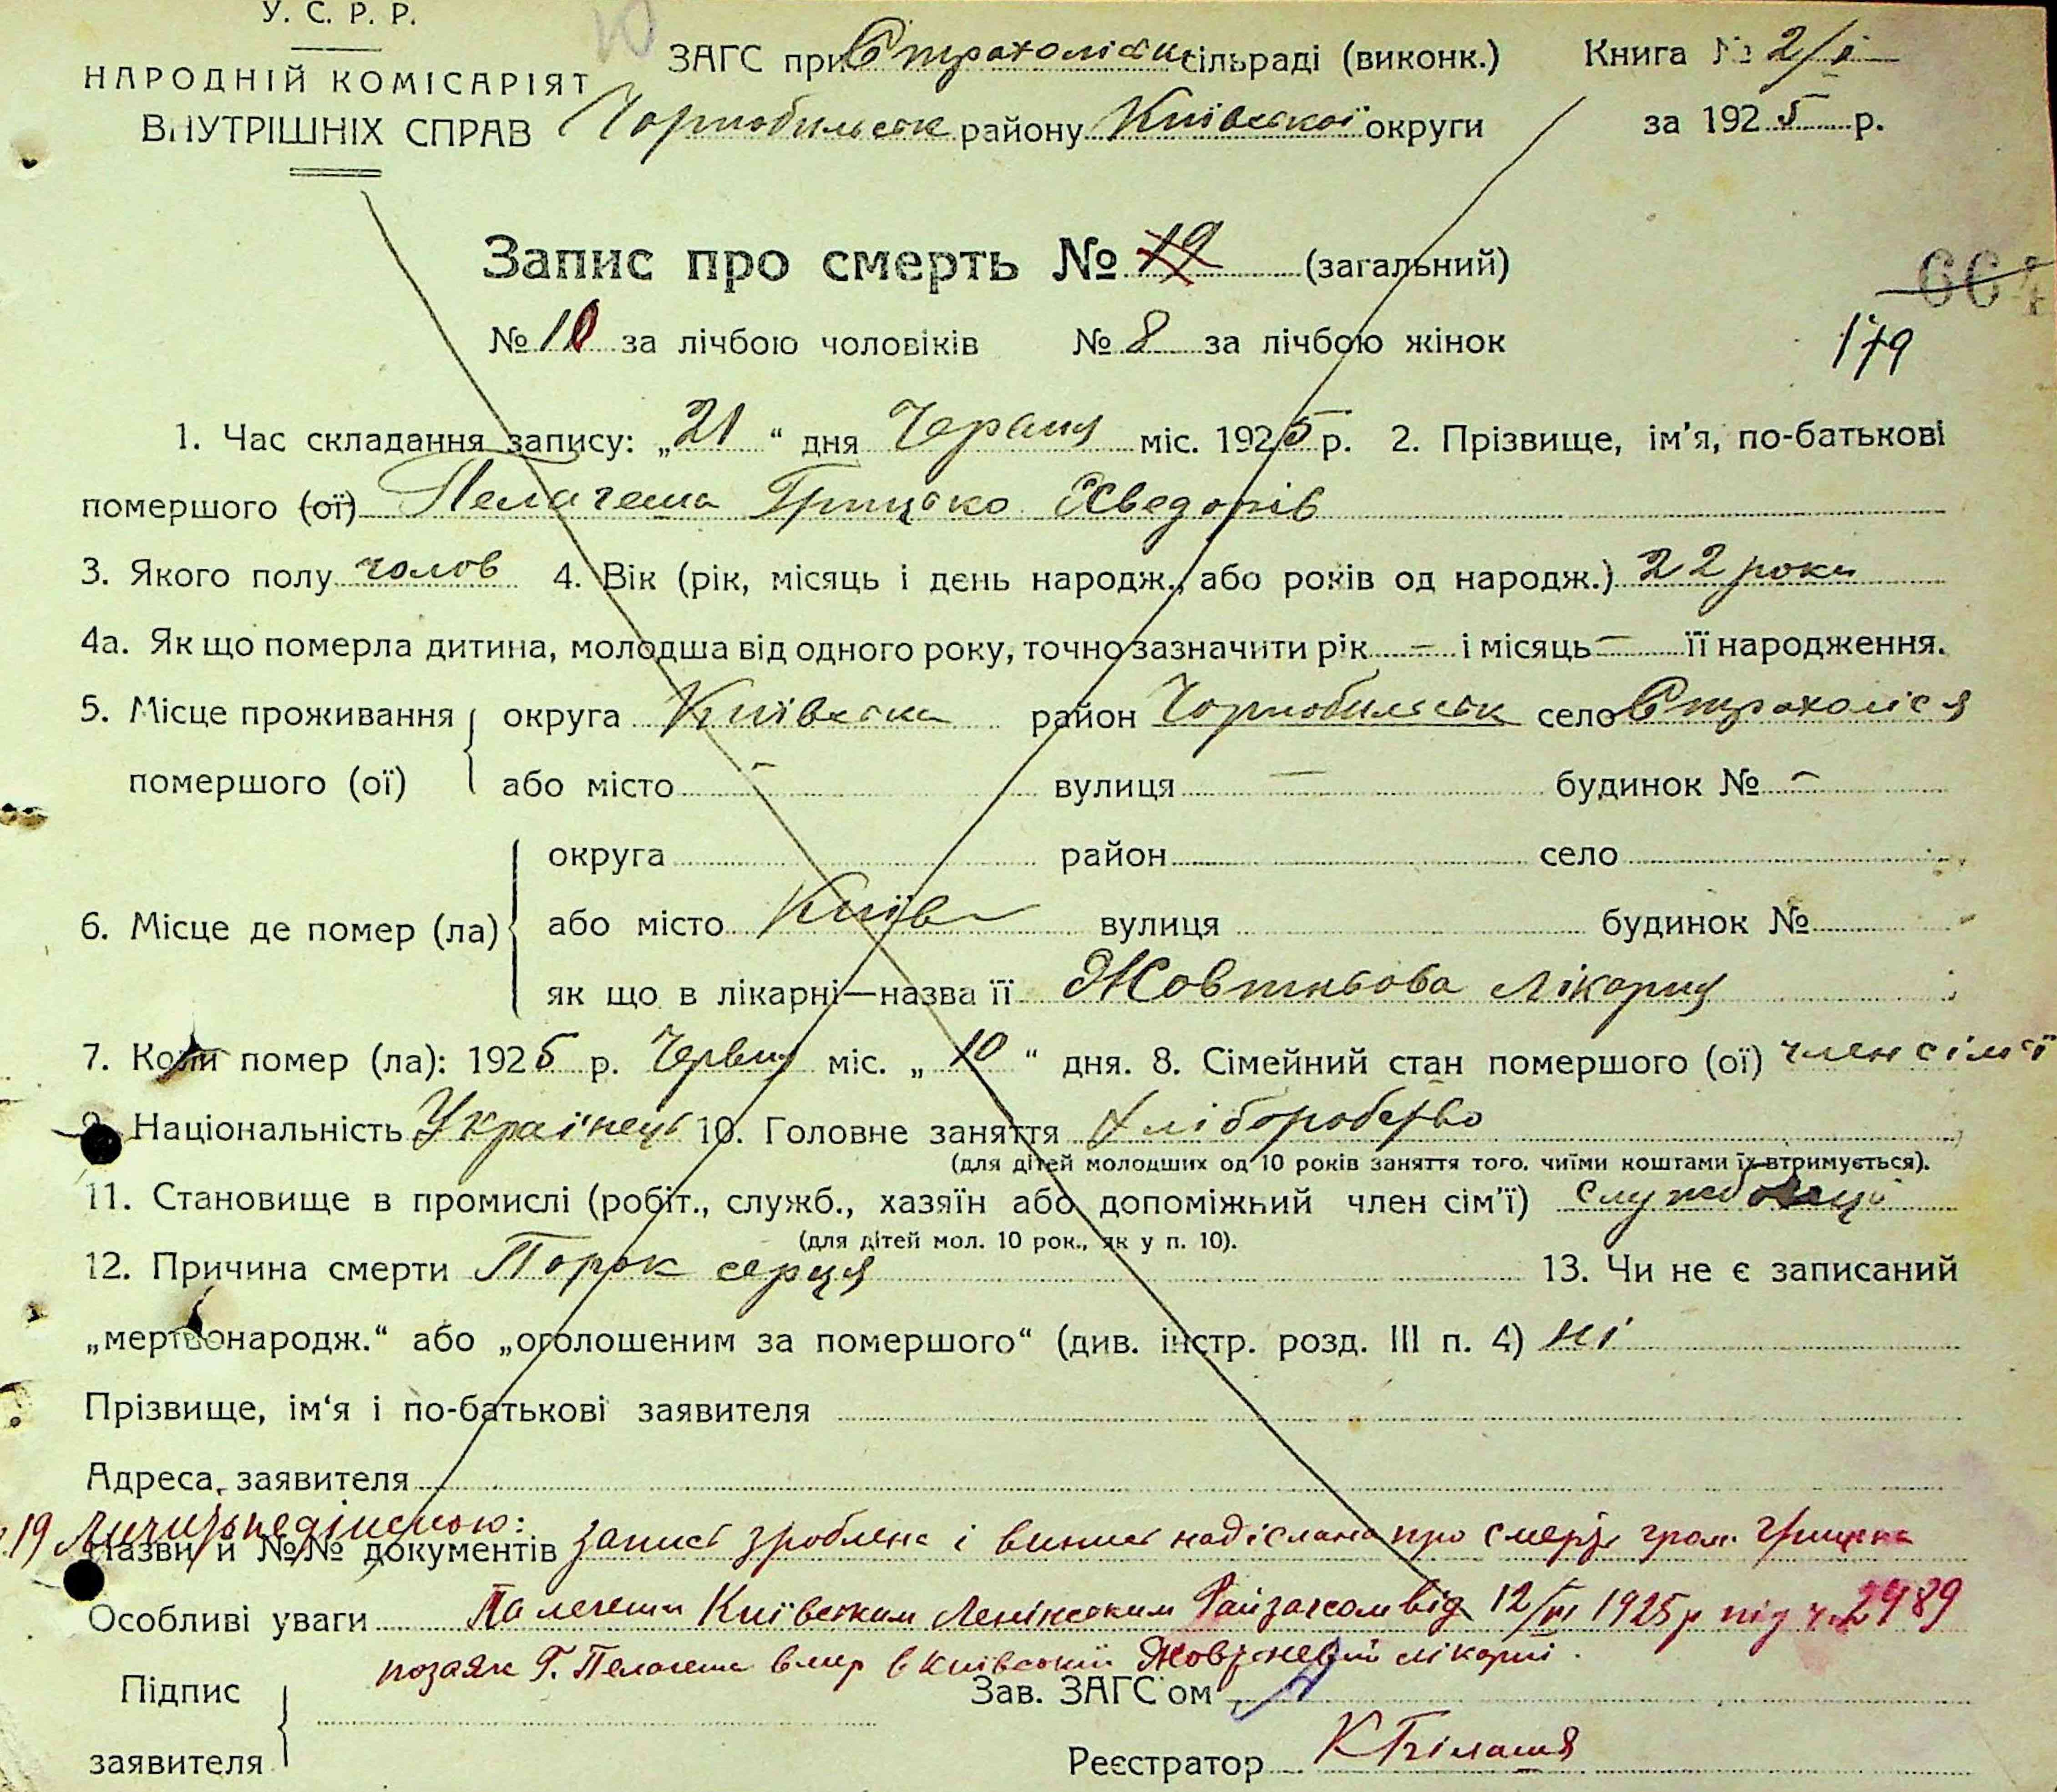 У. С. Р. Р.
НАРОДНІЙ КОМІСАРІЯТ
ВНУТРІШНІХ СПРАВ
ЗАГС при Страхоліськ сільраді (виконк.) Книга № 2/І
Чорнобильськ району Київської округи за 1925 р.
Запис про смерть № 19 (загальний)
664
№ 10 за лічбою чоловіків № 8 за лічбою жінок
179
1. Час складання запису: „21“ дня Червня міс. 1925 р. 2. Прізвище, ім’я, по-батькові
помершого (ої) Пелагеша Грицько Хведорів
3. Якого полу чолов 4. Вік (рік, місяць і день народж., або років од народж.) 22 роки
4а. Як що померла дитина, молодша від одного року, точно зазначити рік – і місяць – її народження.
5. Місце проживання округа Київська район Чорнобильськ село Страхолісся
помершого (ої) або місто – вулиця – будинок № –
округа район село
6. Місце де помер (ла) або місто Київ вулиця будинок №
як що в лікарні—назва її Жовтньова лікарня
7. Коли помер (ла): 1925 р. Червня міс. „10“ дня. 8. Сімейний стан помершого (ої) член сімї
9. Національність Українець 10. Головне заняття Хліборобство
(для дітей молодших од 10 років заняття того, чиїми коштами їх втримується).
11. Становище в промислі (робіт., служб., хазяїн або допоміжний член сім’ї) службовець
(для дітей мол. 10 рок., як у п. 10).
12. Причина смерти Порок серця 13. Чи не є записаний
„мертвонародж.“ або „оголошеним за помершого“ (див. інстр. розд. III п. 4) ні
Прізвище, ім‘я і по-батькові заявителя
Адреса заявителя
19
Назви й №№ документів запис зроблено і надіслана про смерть гром. Грицька
Особливі уваги Палегеши Київським Ленінським Райзагсом від 12/VI 1925 р під ч. 2489
позаяк Г. Пелагеша вмер в Київській Жовтневій лікарні.
Підпис Зав. ЗАГС’ом
заявителя Реєстратор